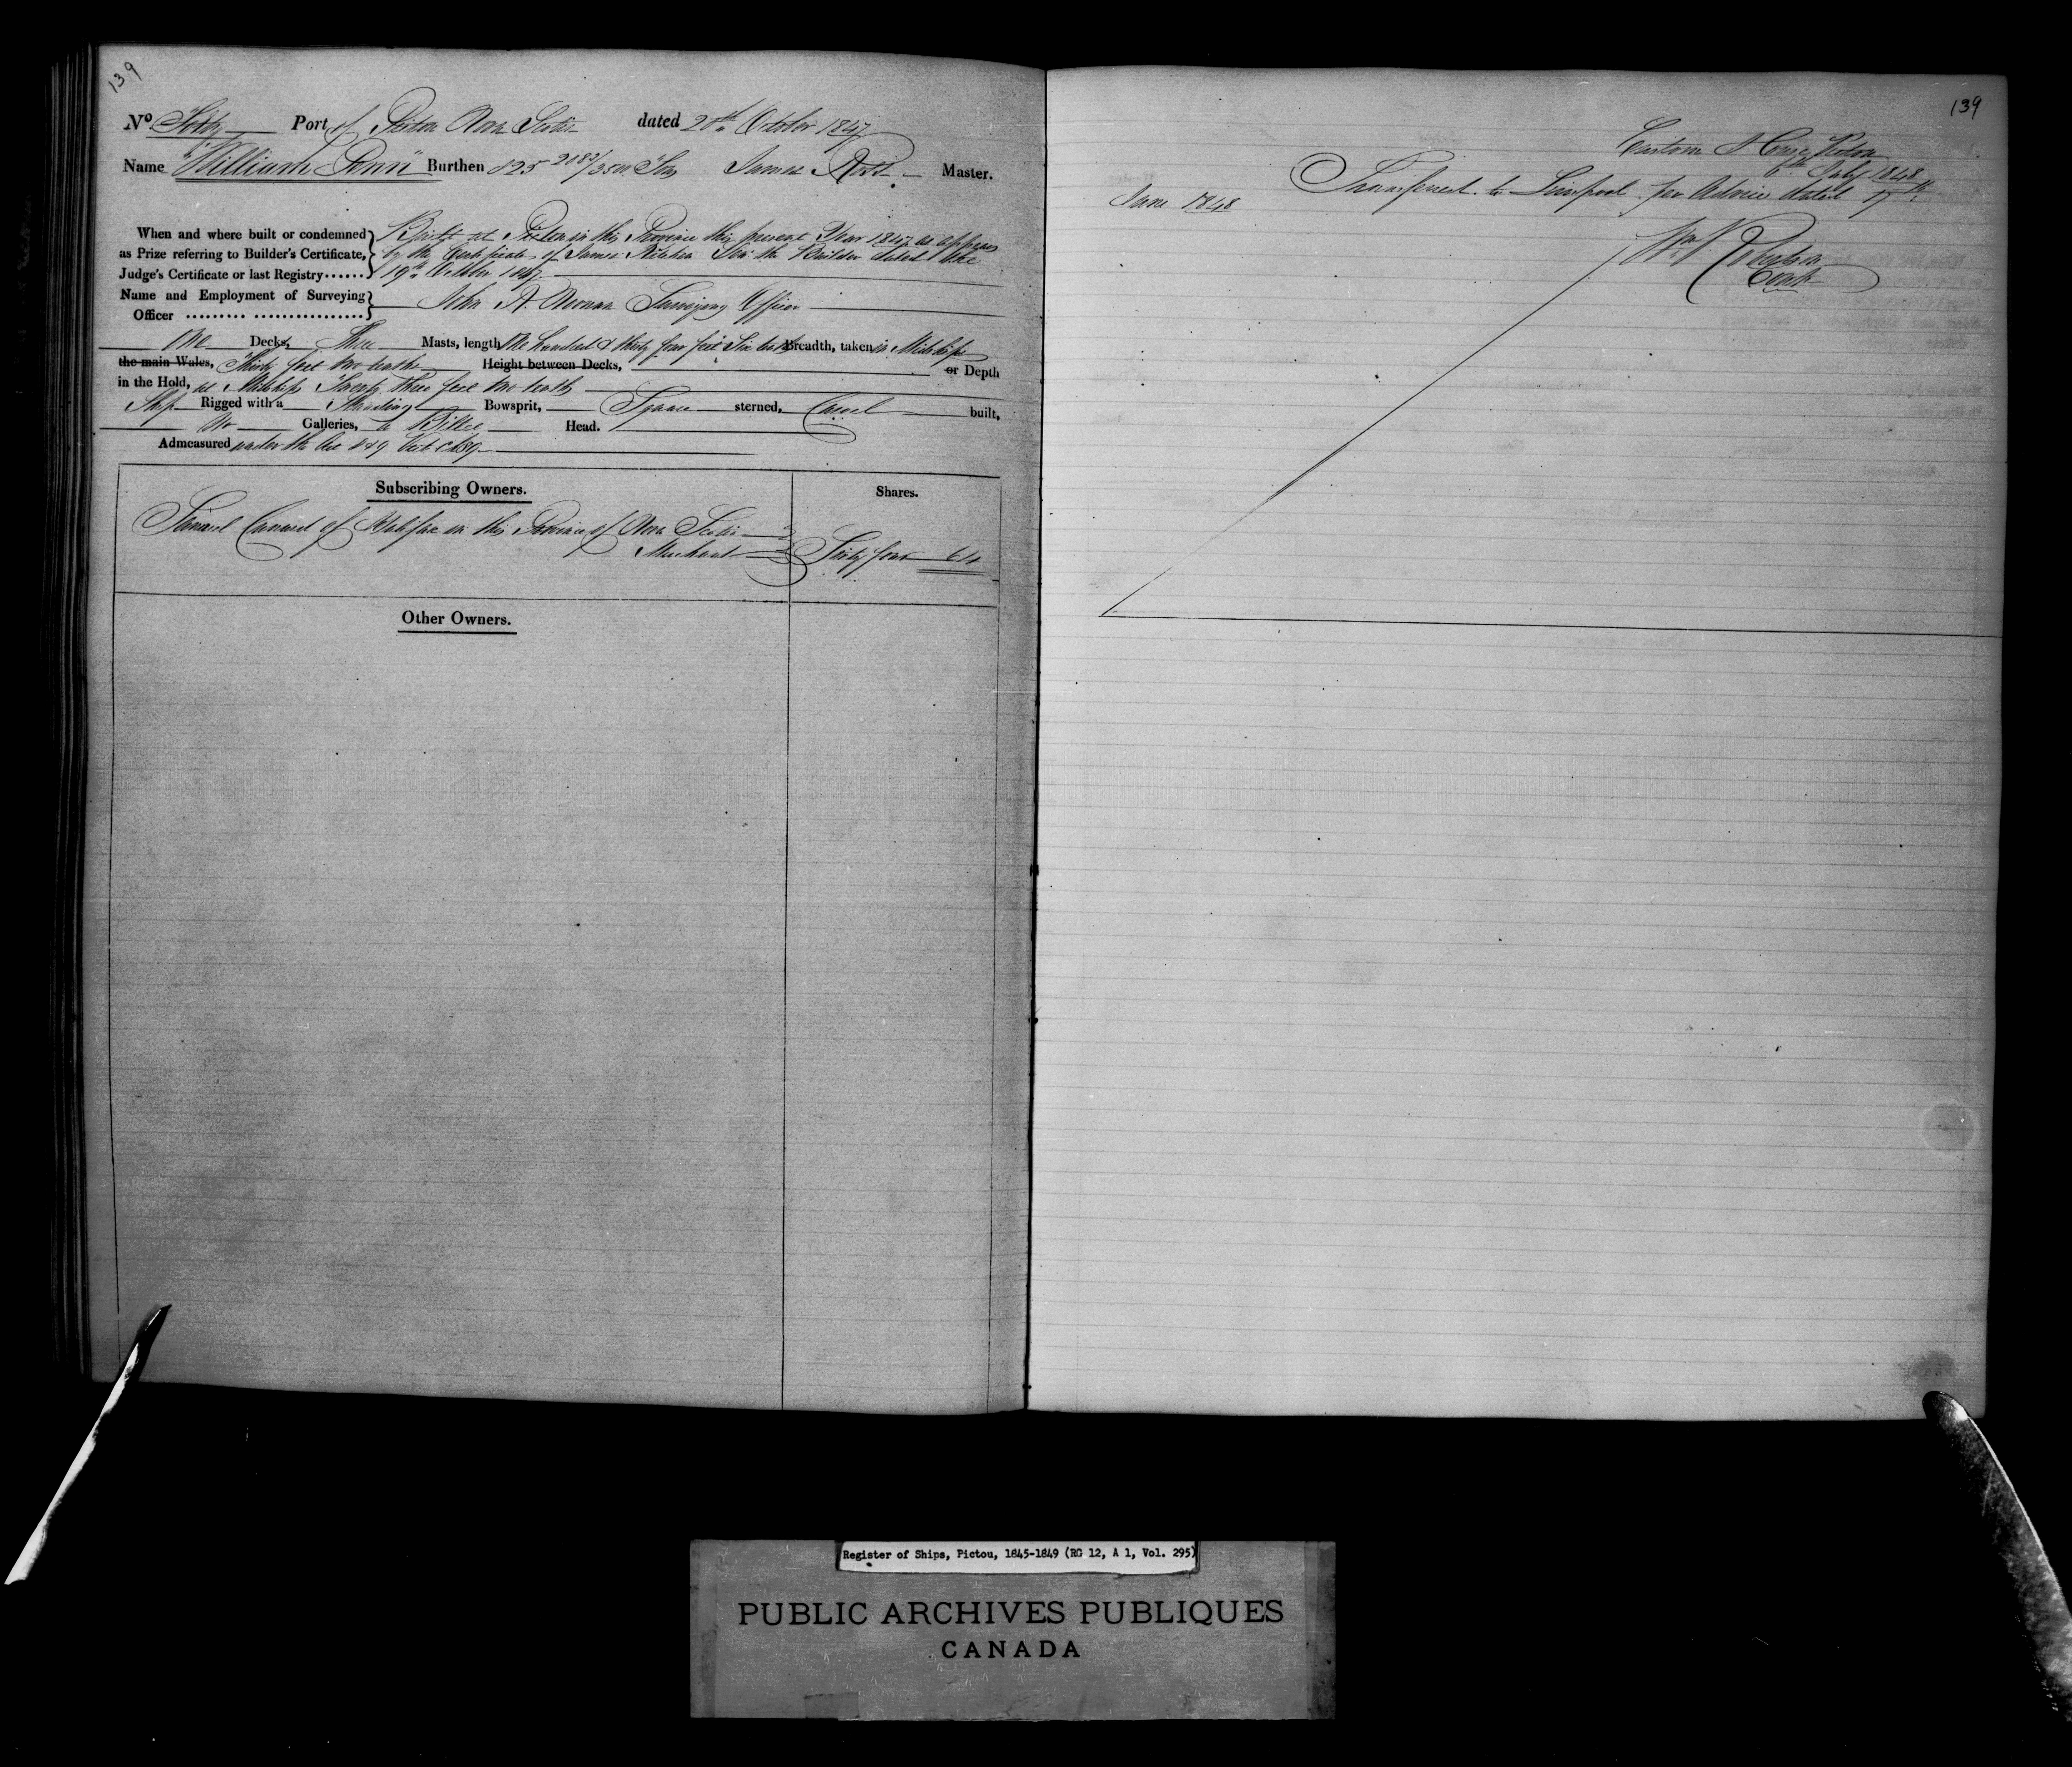 139
No Forty Port of Pictou Nova Scotia dated 20th October 1847
Name "William Penn" Burthen 825 2082/3500 Tons James Ross Master.
When and where built or condemned as Prize referring to Builder's Certificate, Judge's Certificate or last Registry......
Built at Pictou in this Province this present Year 1847 as appears
by the Certificate of James Kitchin Senr the Builder dated the
19th October 1847
Name and Employment of Surveying Officer
John A. Noonan Surveying Officer
One Decks, Three Masts, length One hundred & thirty four feet Six tenths Breadth, taken in Midships
the main Wales, Thirty feet two tenths Height between Decks, or Depth
in the Hold, at Midships Twenty three feet two tenths
Ship Rigged with a Standing Bowsprit, Square sterned, Carvel built,
No Galleries, a Billet Head.
Admeasured under the Act 8 & 9 Vict C 89
Subscribing Owners.
Shares.
Samuel Cunard of Halifax in this Province of Nova Scotia
Merchant Sixty four 64
Other Owners.
139
Custom House Pictou
6th July 1848
Transferred to Liverpool per Advice dated 17th
June 1848
Wm N Robertson
Contr
Register of Ships, Pictou, 1845-1849 (RG 12, A 1, Vol. 295)
PUBLIC ARCHIVES PUBLIQUES
CANADA